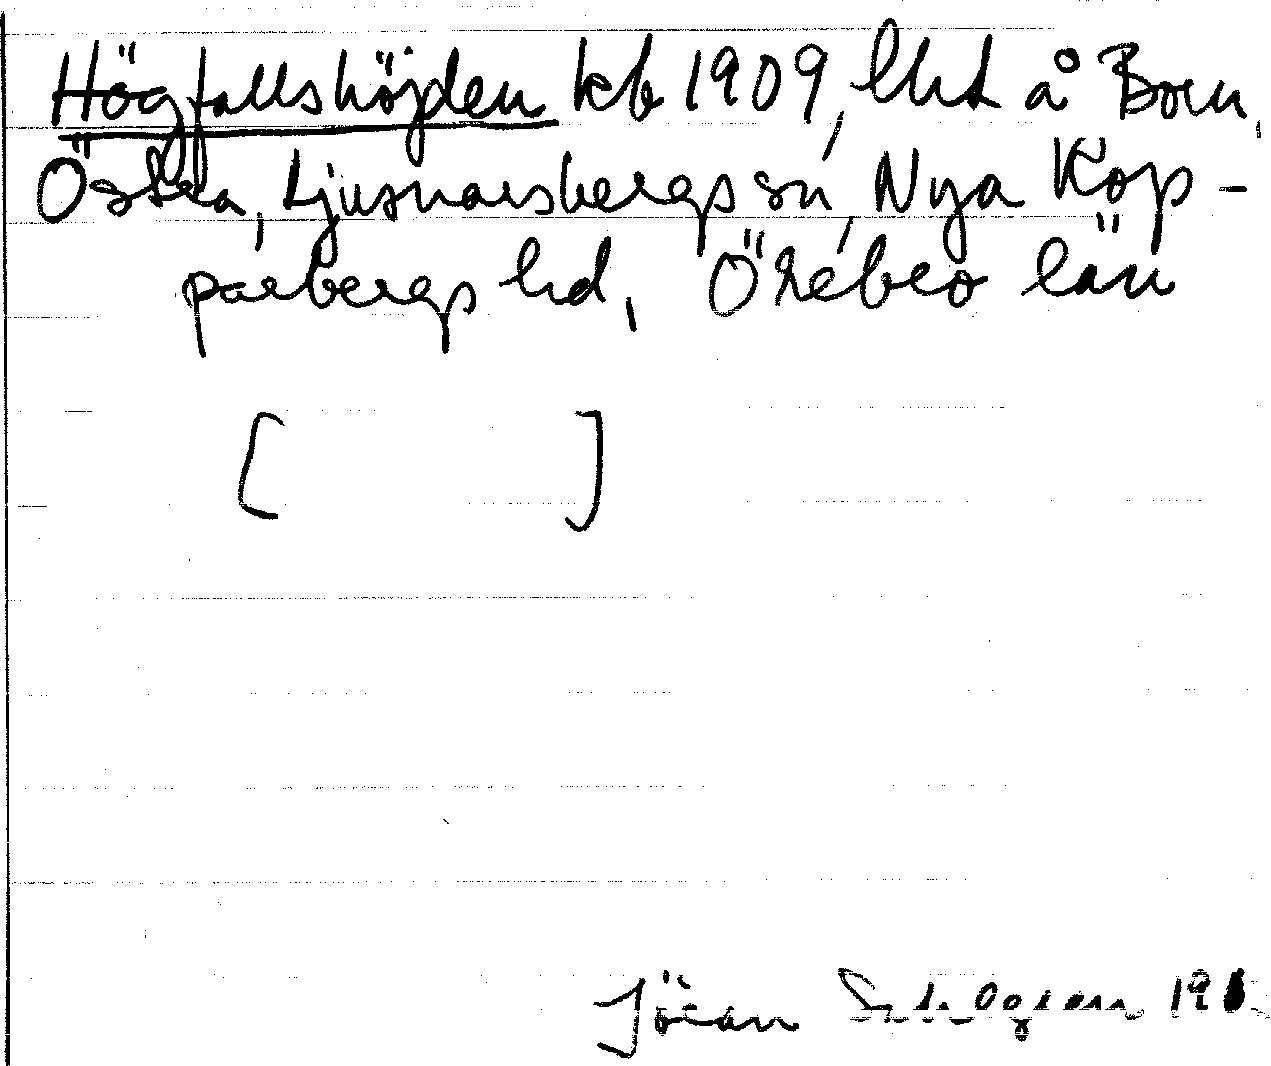 Högfallshöjden kb 1909, lht å Born,
Östra, Ljusnarsbergs sn, Nya Kop-
parbergs hd, Örebro län
[ ]
Jöran